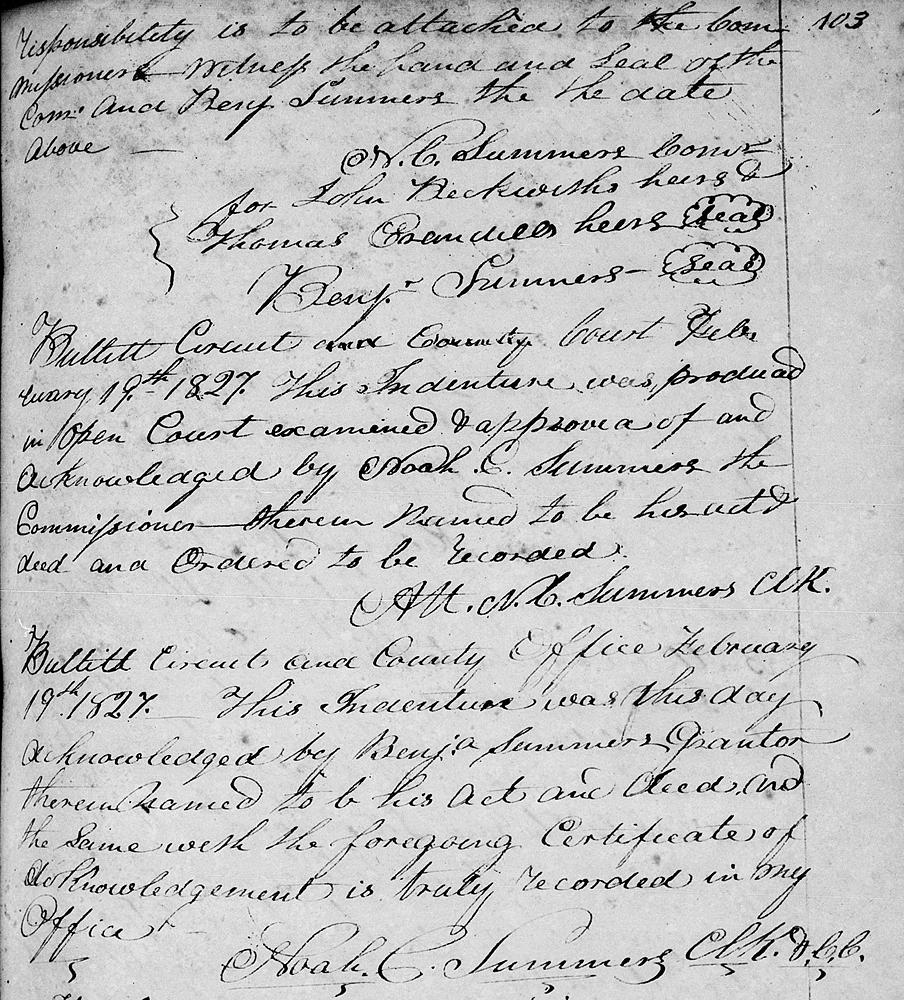 responsibility is to be attached to the Com- 103
missioners Witness the hand and Seal of the
Comr and Benj Summers the the date
Above —
N. C. Summers Comr
for John Beckwiths heirs &
Thomas Crandells heirs Seal
Benjr Summers — Seal
Bullitt Circuit and County Court Feb
ruary 19th 1827. This Indenture was produced
in Open Court examined & approved of and
acknowledged by Noah C. Summers the
Commissioner therein Named to be his act &
deed and Ordered to be recorded.
Att. N. C. Summers Clk.
Bullitt Circuit and County Office February
19th 1827. This Indenture was this day
acknowledged by Benja Summers Grantor
therein Named to be his Act and deed and
the Same with the foregoing Certificate of
acknowledgement is truly recorded in my
Office
Noah C. Summers Clk. B.C.C.